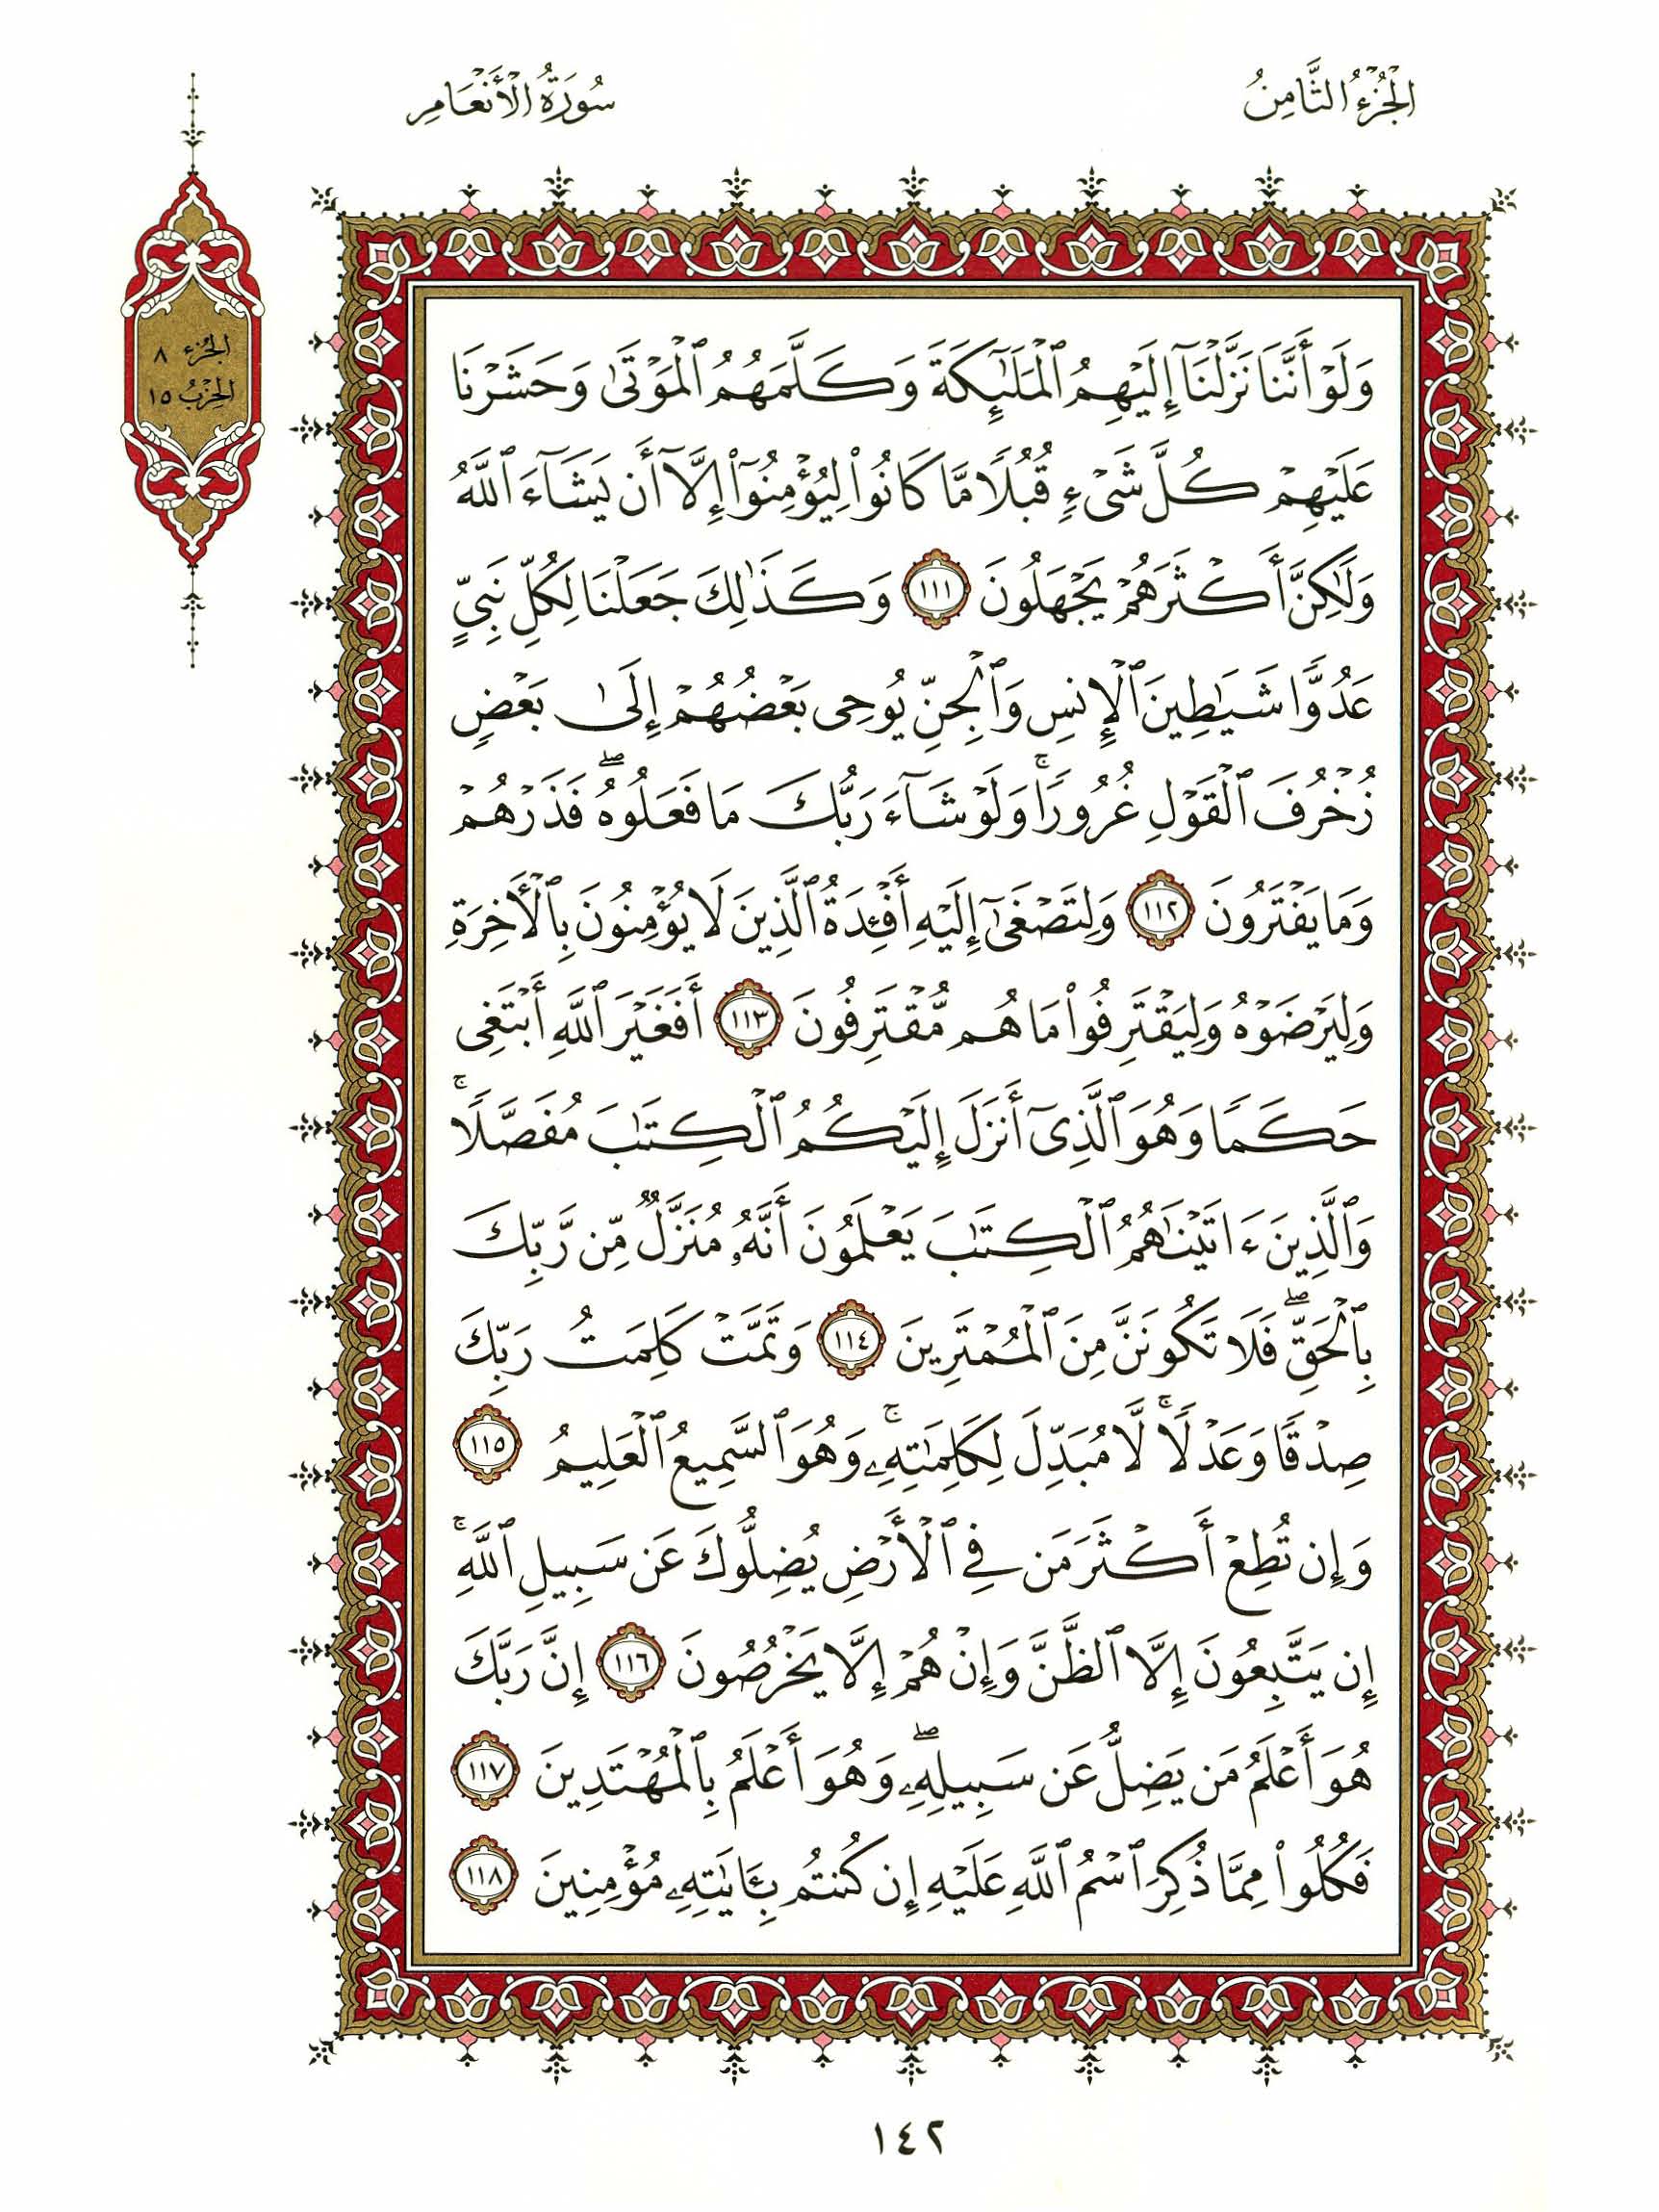 الجُزْءُ الثَّامِنُ
سُورَةُ الأَنْعَامِ
الجزء ٨
الحِزْبُ ١٥
وَلَوْ أَنَّنَا نَزَّلْنَآ إِلَيْهِمُ ٱلْمَلَـٰٓئِكَةَ وَكَلَّمَهُمُ ٱلْمَوْتَىٰ وَحَشَرْنَا
عَلَيْهِمْ كُلَّ شَىْءٍ قُبُلًا مَّا كَانُوا۟ لِيُؤْمِنُوٓا۟ إِلَّآ أَن يَشَآءَ ٱللَّهُ
وَلَـٰكِنَّ أَكْثَرَهُمْ يَجْهَلُونَ ١١١ وَكَذَٰلِكَ جَعَلْنَا لِكُلِّ نَبِىٍّ
عَدُوًّا شَيَـٰطِينَ ٱلْإِنسِ وَٱلْجِنِّ يُوحِى بَعْضُهُمْ إِلَىٰ بَعْضٍ
زُخْرُفَ ٱلْقَوْلِ غُرُورًا ۚ وَلَوْ شَآءَ رَبُّكَ مَا فَعَلُوهُ ۖ فَذَرْهُمْ
وَمَا يَفْتَرُونَ ١١٢ وَلِتَصْغَىٰٓ إِلَيْهِ أَفْـِٔدَةُ ٱلَّذِينَ لَا يُؤْمِنُونَ بِٱلْأَخِرَةِ
وَلِيَرْضَوْهُ وَلِيَقْتَرِفُوا۟ مَا هُم مُّقْتَرِفُونَ ١١٣ أَفَغَيْرَ ٱللَّهِ أَبْتَغِى
حَكَمًا وَهُوَ ٱلَّذِىٓ أَنزَلَ إِلَيْكُمُ ٱلْكِتَـٰبَ مُفَصَّلًا ۚ
وَٱلَّذِينَ ءَاتَيْنَـٰهُمُ ٱلْكِتَـٰبَ يَعْلَمُونَ أَنَّهُۥ مُنَزَّلٌ مِّن رَّبِّكَ
بِٱلْحَقِّ ۖ فَلَا تَكُونَنَّ مِنَ ٱلْمُمْتَرِينَ ١١٤ وَتَمَّتْ كَلِمَتُ رَبِّكَ
صِدْقًا وَعَدْلًا ۚ لَّا مُبَدِّلَ لِكَلِمَـٰتِهِۦ ۚ وَهُوَ ٱلسَّمِيعُ ٱلْعَلِيمُ ١١٥
وَإِن تُطِعْ أَكْثَرَ مَن فِى ٱلْأَرْضِ يُضِلُّوكَ عَن سَبِيلِ ٱللَّهِ ۚ
إِن يَتَّبِعُونَ إِلَّا ٱلظَّنَّ وَإِنْ هُمْ إِلَّا يَخْرُصُونَ ١١٦ إِنَّ رَبَّكَ
هُوَ أَعْلَمُ مَن يَضِلُّ عَن سَبِيلِهِۦ ۖ وَهُوَ أَعْلَمُ بِٱلْمُهْتَدِينَ ١١٧
فَكُلُوا۟ مِمَّا ذُكِرَ ٱسْمُ ٱللَّهِ عَلَيْهِ إِن كُنتُم بِـَٔايَـٰتِهِۦ مُؤْمِنِينَ ١١٨
١٤٢